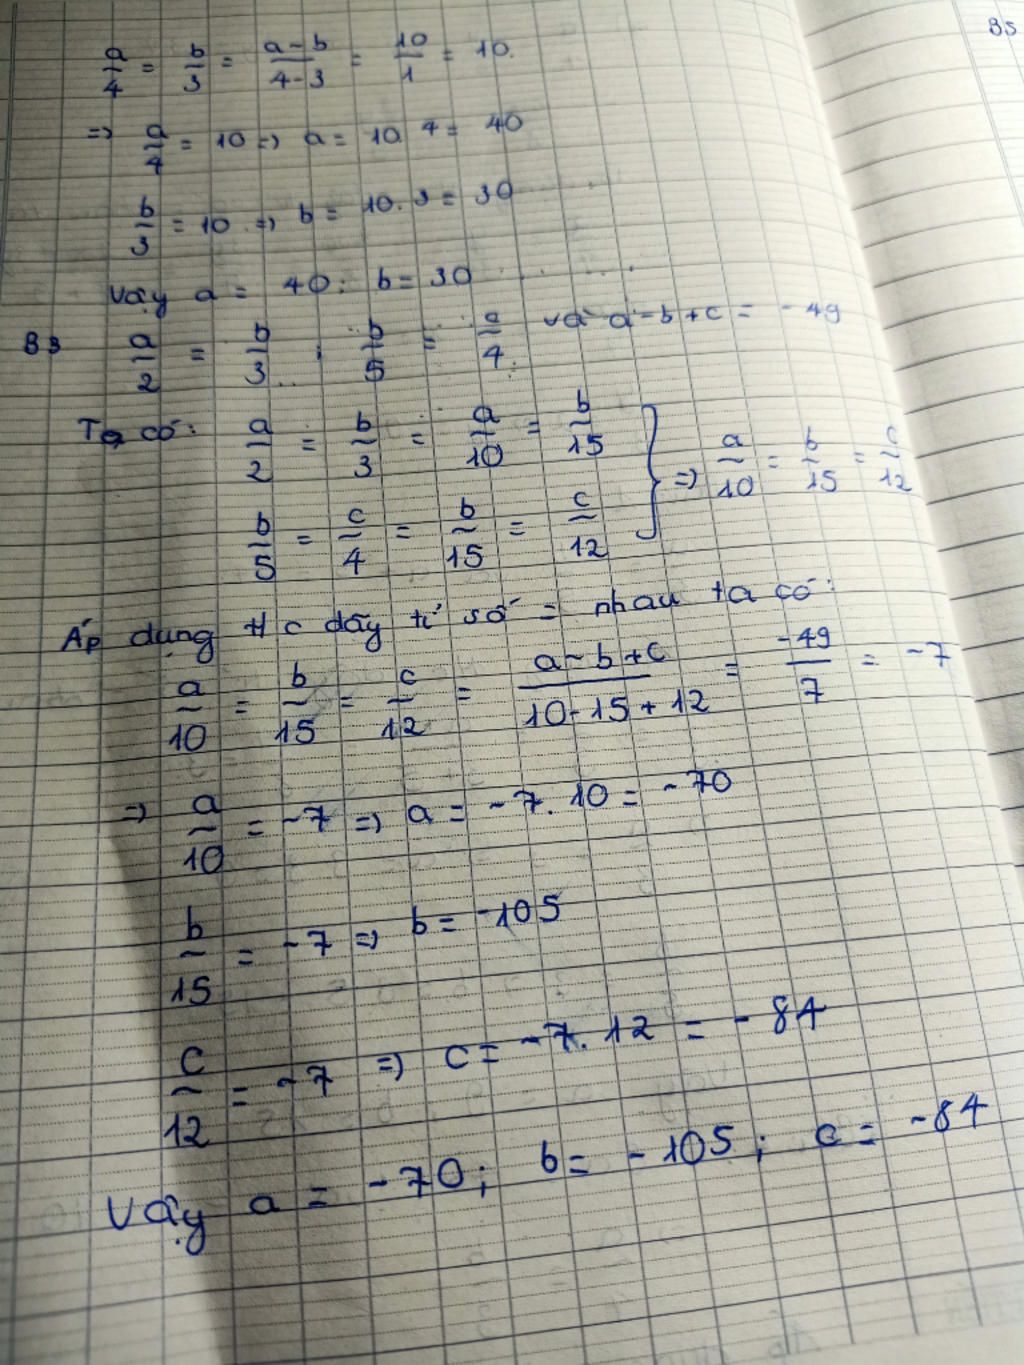 B5
a/4 = b/3 = (a-b)/(4-3) = 10/1 = 10.
=> a/4 = 10 => a = 10.4 = 40
b/3 = 10 => b = 10.3 = 30
Vậy a = 40; b = 30
B3 a/2 = b/3 ; b/5 = c/4 và a-b+c = -49
Ta có: a/2 = b/3 = a/10 = b/15
b/5 = c/4 = b/15 = c/12 } => a/10 = b/15 = c/12
Áp dụng t/c dãy tỉ số = nhau ta có:
a/10 = b/15 = c/12 = (a-b+c)/(10-15+12) = -49/7 = -7
=> a/10 = -7 => a = -7.10 = -70
b/15 = -7 => b = -105
c/12 = -7 => c = -7.12 = -84
Vậy a = -70; b = -105; c = -84